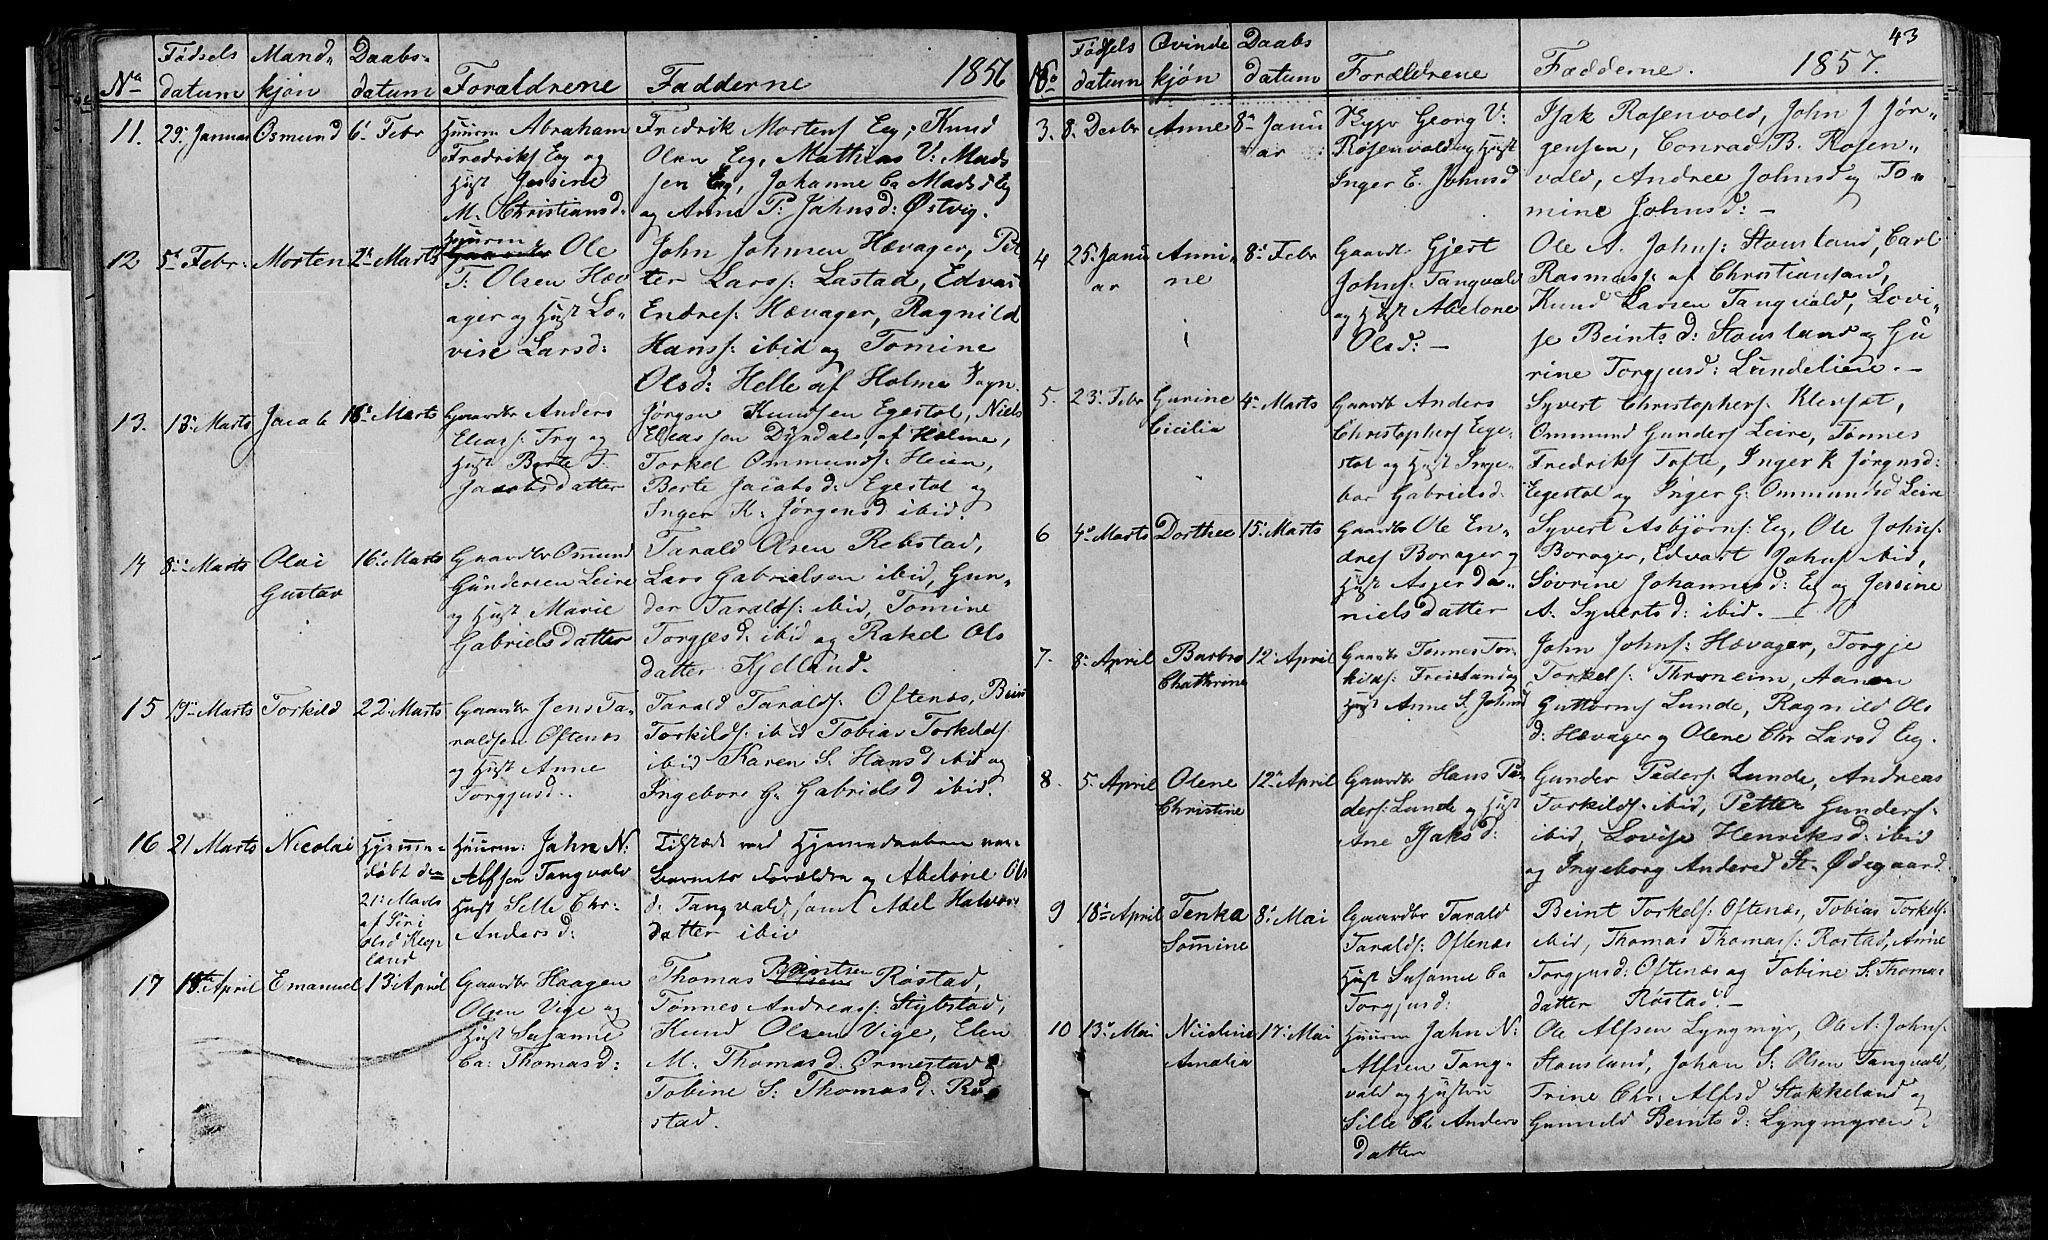 Nº
Fødsels
datum
Mand-
kjøn
Daabs-
datum
Forældrene
Fadderne
1856
11.
29. Januar
Osmund
6' Febr
Huusm Abraham
Fredriks Eeg og
Hust
M. Christiansd:
Fredrik Mortens Eeg, Knud
Olsen Eeg, Mathias V: Mads
sen Eeg, Johanne Ca Madsd Eeg
og Anne P: Jahnsd: Østvig.
12
5' Febr:
Morten
2' Marts
Huusm
Ole
T. Olsen Hæv
ager og Hust Lo-
vise Larsd:
John Johnsen Hævager, Pet
ter Larss: Lastad, Edvard
Endres: Hævager, Ragnild
Hanss: ibid og Tomine
Olsd: Helle af Holme Sogn.
13.
13' Marts
Jacob
16' Marts
Gaardbr Anders
Eliass: Try og
Hust Berte T.
Jacobsdatter
Jørgen Knudsen Egestøl, Niels
Eleassen Dyrdal, af Holme,
Torkel Ommunds: Heien,
Berte Jacobsd: Egestøl og
Inger K. Jørgensd ibid.
14
8' Marts
Olai
Gustav
16' Marts
Gaardbr Osmund
Gundersen Leire
og Hust Marie
Gabrielsdatter
Tarald Olsen Rebstad,
Lars Gabrielsen ibid, Gun-
der Taralds: ibid, Tomine
Torgjesd: ibid og Rakel Ols
datter Kjelland.
15
19' Marts
Torkild
22' Marts
Gaardbr Jens Ta-
raldsen Oftenæs
og Hust Anne
Torgjusd..
Tarald Taralds: Oftenæs, Beint
Torkilds: ibid Tobias Torkilds:
ibid Karen S. Hansd ibid og
Ingebore G. Gabrielsd ibid.
16
21 Marts
Nicolai
Hjemme-
døbt de-
21' Marts
af Siri
Olsd Kegs
land
Huusm: Jahn N:
Alfsen Tangvald
Hust Sille Chr:
Andersd:
Tilstede ved Hjemmedaaben var
Barnets Forældre og Abelone Ols
d: Tangvald, samt Abel Halvors
datter ibid
17
18' April
Emanuel
13' April
Gaardbr Haagen
Olsen Vige og
Hust Susanne
Ca: Thomasd:
Thomas Beintsen Røstad,
Tønnes Andreass: Stybstad,
Knud Olsen Vige, Elen
M. Thomasd: Ormestad og
Tobine S: Thomasd: Rø-
stad.
43
No
Fødsels
datum
Qvinde
kjøn
Daabs
datum
Forældrene
Fadderne.
1857.
3.
8. Decbr
Anne
8' Janu
ar
Bygs Georg V:
Rosenvold og Hust
Inger E. Johnsd
Isak Rosenvold, John J Jør-
gensen, Conrad B. Rosen-
vald, Andree Johnsd og To-
mine Johnsd: —
4
25' Janu
ar
Anni-
ne
8' Febr
Gaardb: Gjert
Johns: Tangvald
og Hust Abelone
Olsd: —
Ole A. Johns: Stousland, Carl
Rasmuss: af Christiansand,
Knud Larsen Tangvald, Lovi-
se Beintsd: Stousland og Gu
rine Torgjusd: Lundelien. —
5.
23' Febr
Gurine
Cicilia
4' Marts
Gaardb Anders
Christophers Ege-
støl og Hust Inge-
bor Gabrielsd:
Syvert Christophers: Klepsøt,
Ommund Gunders Leire, Tønnes
Fredriks Tofte, Inger K Jørgnsd:
Egestøl og Inger G: Ommundsd Leire
6
4' Marts
Dorthee
15' Marts
Gaardbr Ole En-
dres Borager og
Hust Asjer Da-
nielsdatter
Syvert Asbjørns: Eeg, Ole Johns:
Borager, Edvart Johns ibid,
Sovrine Johannesd: Eeg og Jessine
A. Syvertsd: ibid. —
7.
8' April
Barbro
Chathrine
12' April
Gaardbr Tønnes Tor-
kilds: Freistand og
Hust Anne S. Johnsd
John Johns: Hævager, Torgje
Torkels: Throneim, Aanen
Guttorms Lunde, Ragnild Ols
d: Hævager og Olene Chr Larsd Eeg.
8.
5' April
Olene
Christine
12' April
Gaardbr Hans Pe-
ders: Lunde og Hust
Ane Isaksd:
Gunder Peders: Lunde, Andreas
Torkilds: ibid, Petter Gunders:
ibid, Lovise Henriksd: ibid
og Ingeborg Andersd St. Ødegaard.
9
18' April
Tenka
Somine
8' Mai
Gaardbr Tarald
Taralds: Oftenæs
Hust Susanne Ca
Torgjusd:
Beint Torkels: Oftenæs, Tobias Torkels:
ibid, Thomas Thomass: Røstad, Anne
Torgjusd: Oftenæs og Tobine S. Thomas
datter Røstad. —
10
13' Mai
Nicoline
Amalia
17' Mai
Huusm Jahn N:
Alfsen Tang-
vald og Hustru
Sille Ch Anders
datter
Ole Alfsen Lyngmyr, Ole A. Johns:
Stousland, Johan S: Olsen Tangvald,
Trine Chr: Alfsd Stokkeland og
Gunnild Beintsd: Lyngmyren.